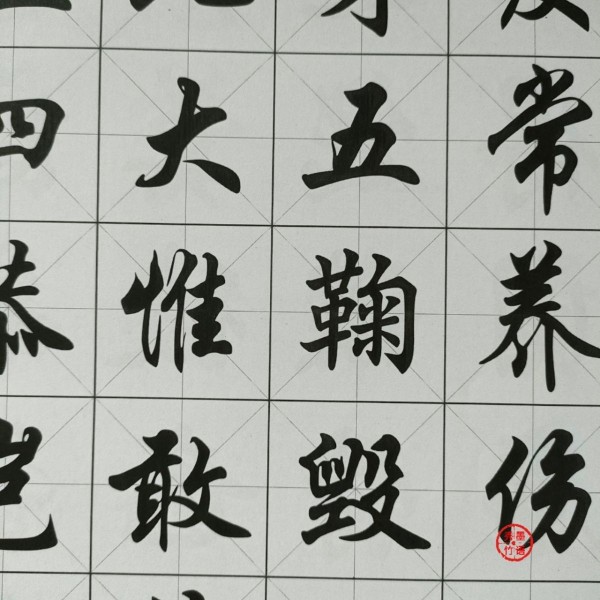 四大五常
恭惟鞠养
岂敢毁伤